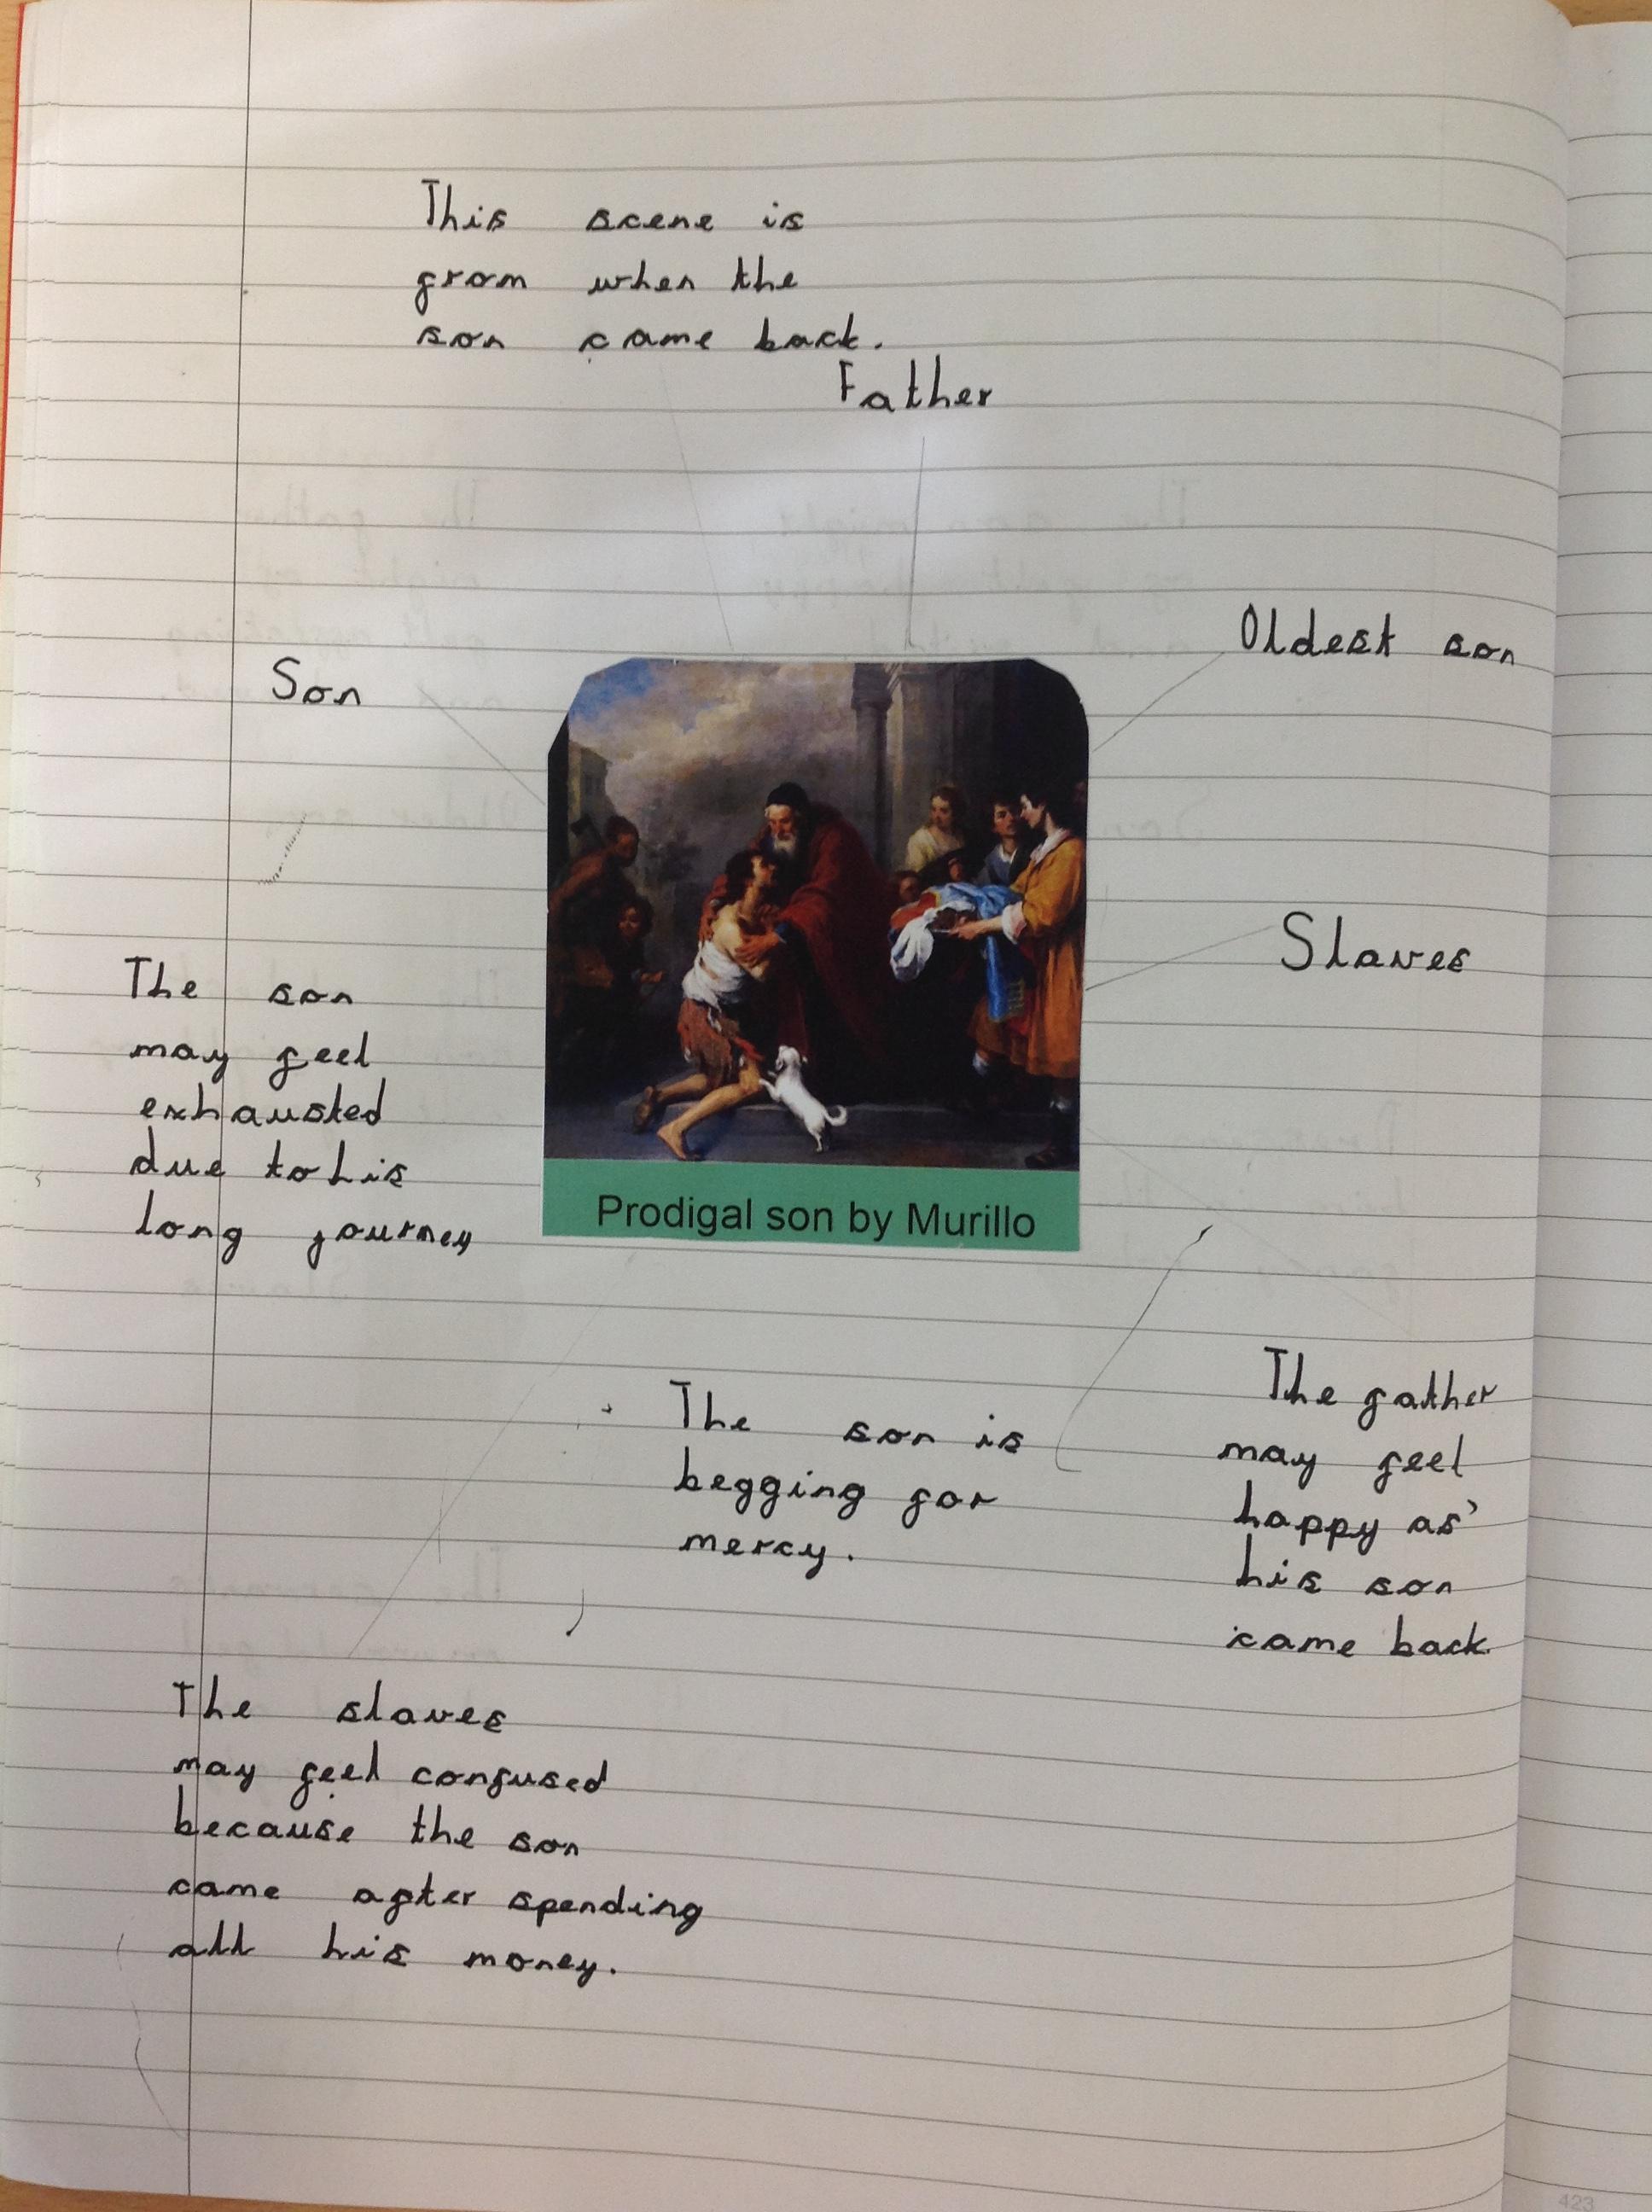 This scene is
from when the
son came back.
Father
Oldest son
Son
Slaves
The son
may feel
exhausted
due to his
long journey
Prodigal son by Murillo
The son is
begging for
mercy.
The father
may feel
happy as
his son
came back
The slaves
may feel confused
because the son
came after spending
all his money.
423